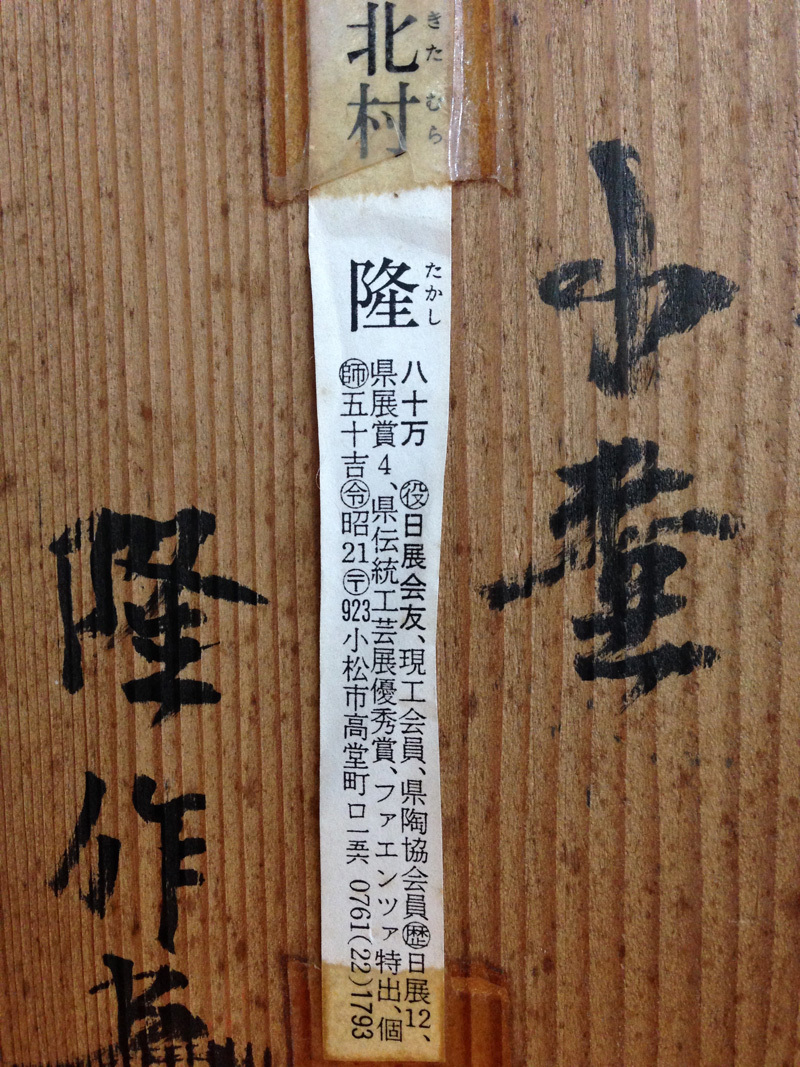 小壷
きたむら
北村
たかし
隆
八十万 役日展会友、現工会員、県陶協会員歴日展12、
県展賞4、県伝統工芸展優秀賞、ファエンツァ特出、個
師五十吉令昭21〒923小松市高堂町ロ一五六 0761(22)1793
隆作